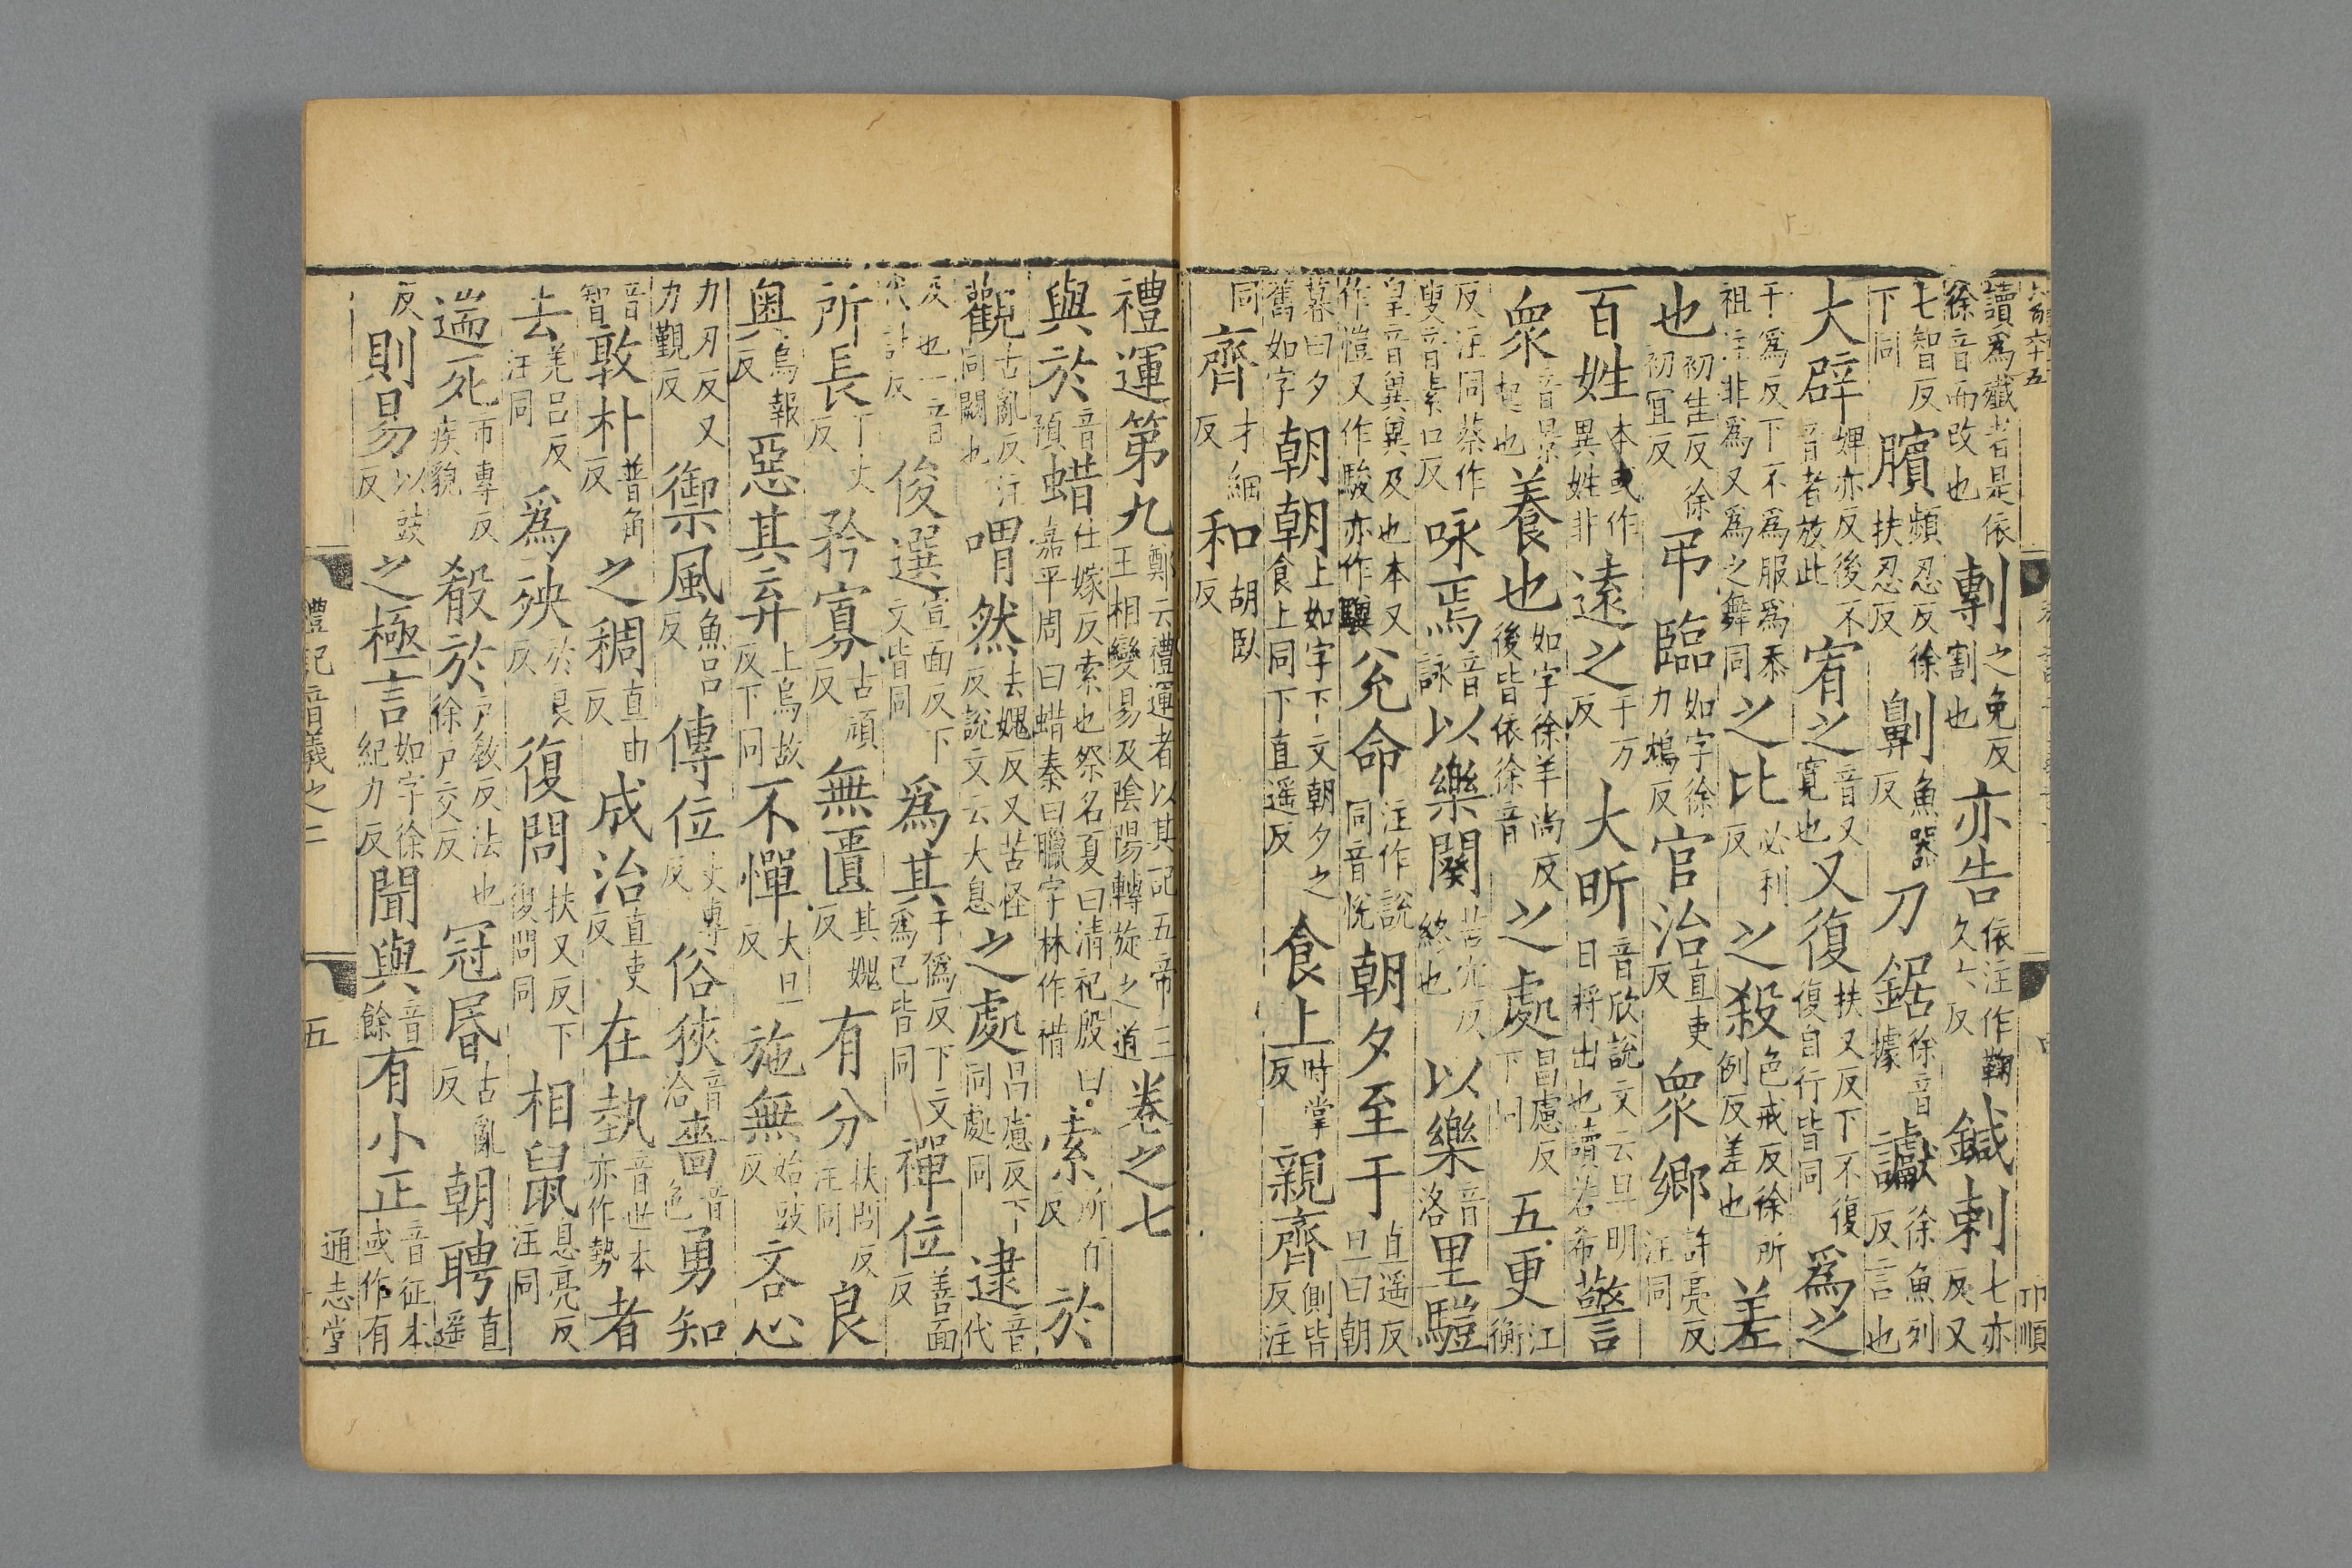 讀爲殲者是依徐音而改也 剸之免反割也 亦告依注作鞠久六反 鍼刺七亦反又
七智反下同 臏頻忍反徐扶忍反 劓魚器反 刀鋸徐音據 讞徐魚列反言也
大辟婢亦反後不音者放此 宥之音又寬也 又復扶又反下不復復自行皆同 爲之
于爲反下不爲服爲忝祖注非爲又爲之舞同 之比必利反 之殺色戒反徐所例反差也 差
也初佳反徐初宜反 弔臨如字徐力鴆反 官治直吏反 衆鄉許亮反注同
百姓本或作異姓非 遠之于万反 大昕音欣說文云旦明日將出也讀若希 警
衆音景起也 養也如字徐羊尚反後皆依徐音 之處昌慮反下同 五更江衡
反注同蔡作叟音素口反 咏焉音詠 以樂闋苦穴反終也 以樂音洛 里驩
皇音冀冀及也本又作愷又作駿亦作驥 兊命注作說同音悅 朝夕至于直遥反旦曰朝
暮曰夕舊如字 朝朝上如字下文朝夕之食上同下直遥反 食上時掌反 親齊側皆反注
同 齊才細反 和胡臥反
禮運第九鄭云禮運者以其記五帝三王相變易及陰陽轉旋之道 卷之七
與於音預 蜡仕嫁反索也祭名夏曰清祀殷曰嘉平周曰蜡秦曰臘字林作䄍 索所百反 於
觀古亂反注同闕也 喟然去媿反又苦怪反說文云大息 之處昌慮反下同處同 逮音代
及也一音代計反 俊選宣面反下文皆同 爲其于僞反下文爲己皆同 禪位善面反
所長丁丈反 矜寡古頑反 無匱其媿反 有分扶問反注同 良
奥烏報反 惡其弃上烏故反下同 不憚大旦反 施無始豉反 吝心
力刃反又力覲反 御風魚呂反 傳位丈專反 俗狹音洽 嗇音色 勇知
音智 敦朴普角反 之稠直由反 成治直吏反 在埶音世本亦作勢 者
去羌呂反注同 爲殃於良反 復問扶又反下復問同 相鼠息亮反注同
遄死市專反疾貌 殽於戶敎反法也徐戶交反 冠昏古亂反 朝聘直遥
反 則易以豉反 之極言如字徐紀力反 聞與音餘 有小正音征本或作有
禮記音義之二
五
通志堂